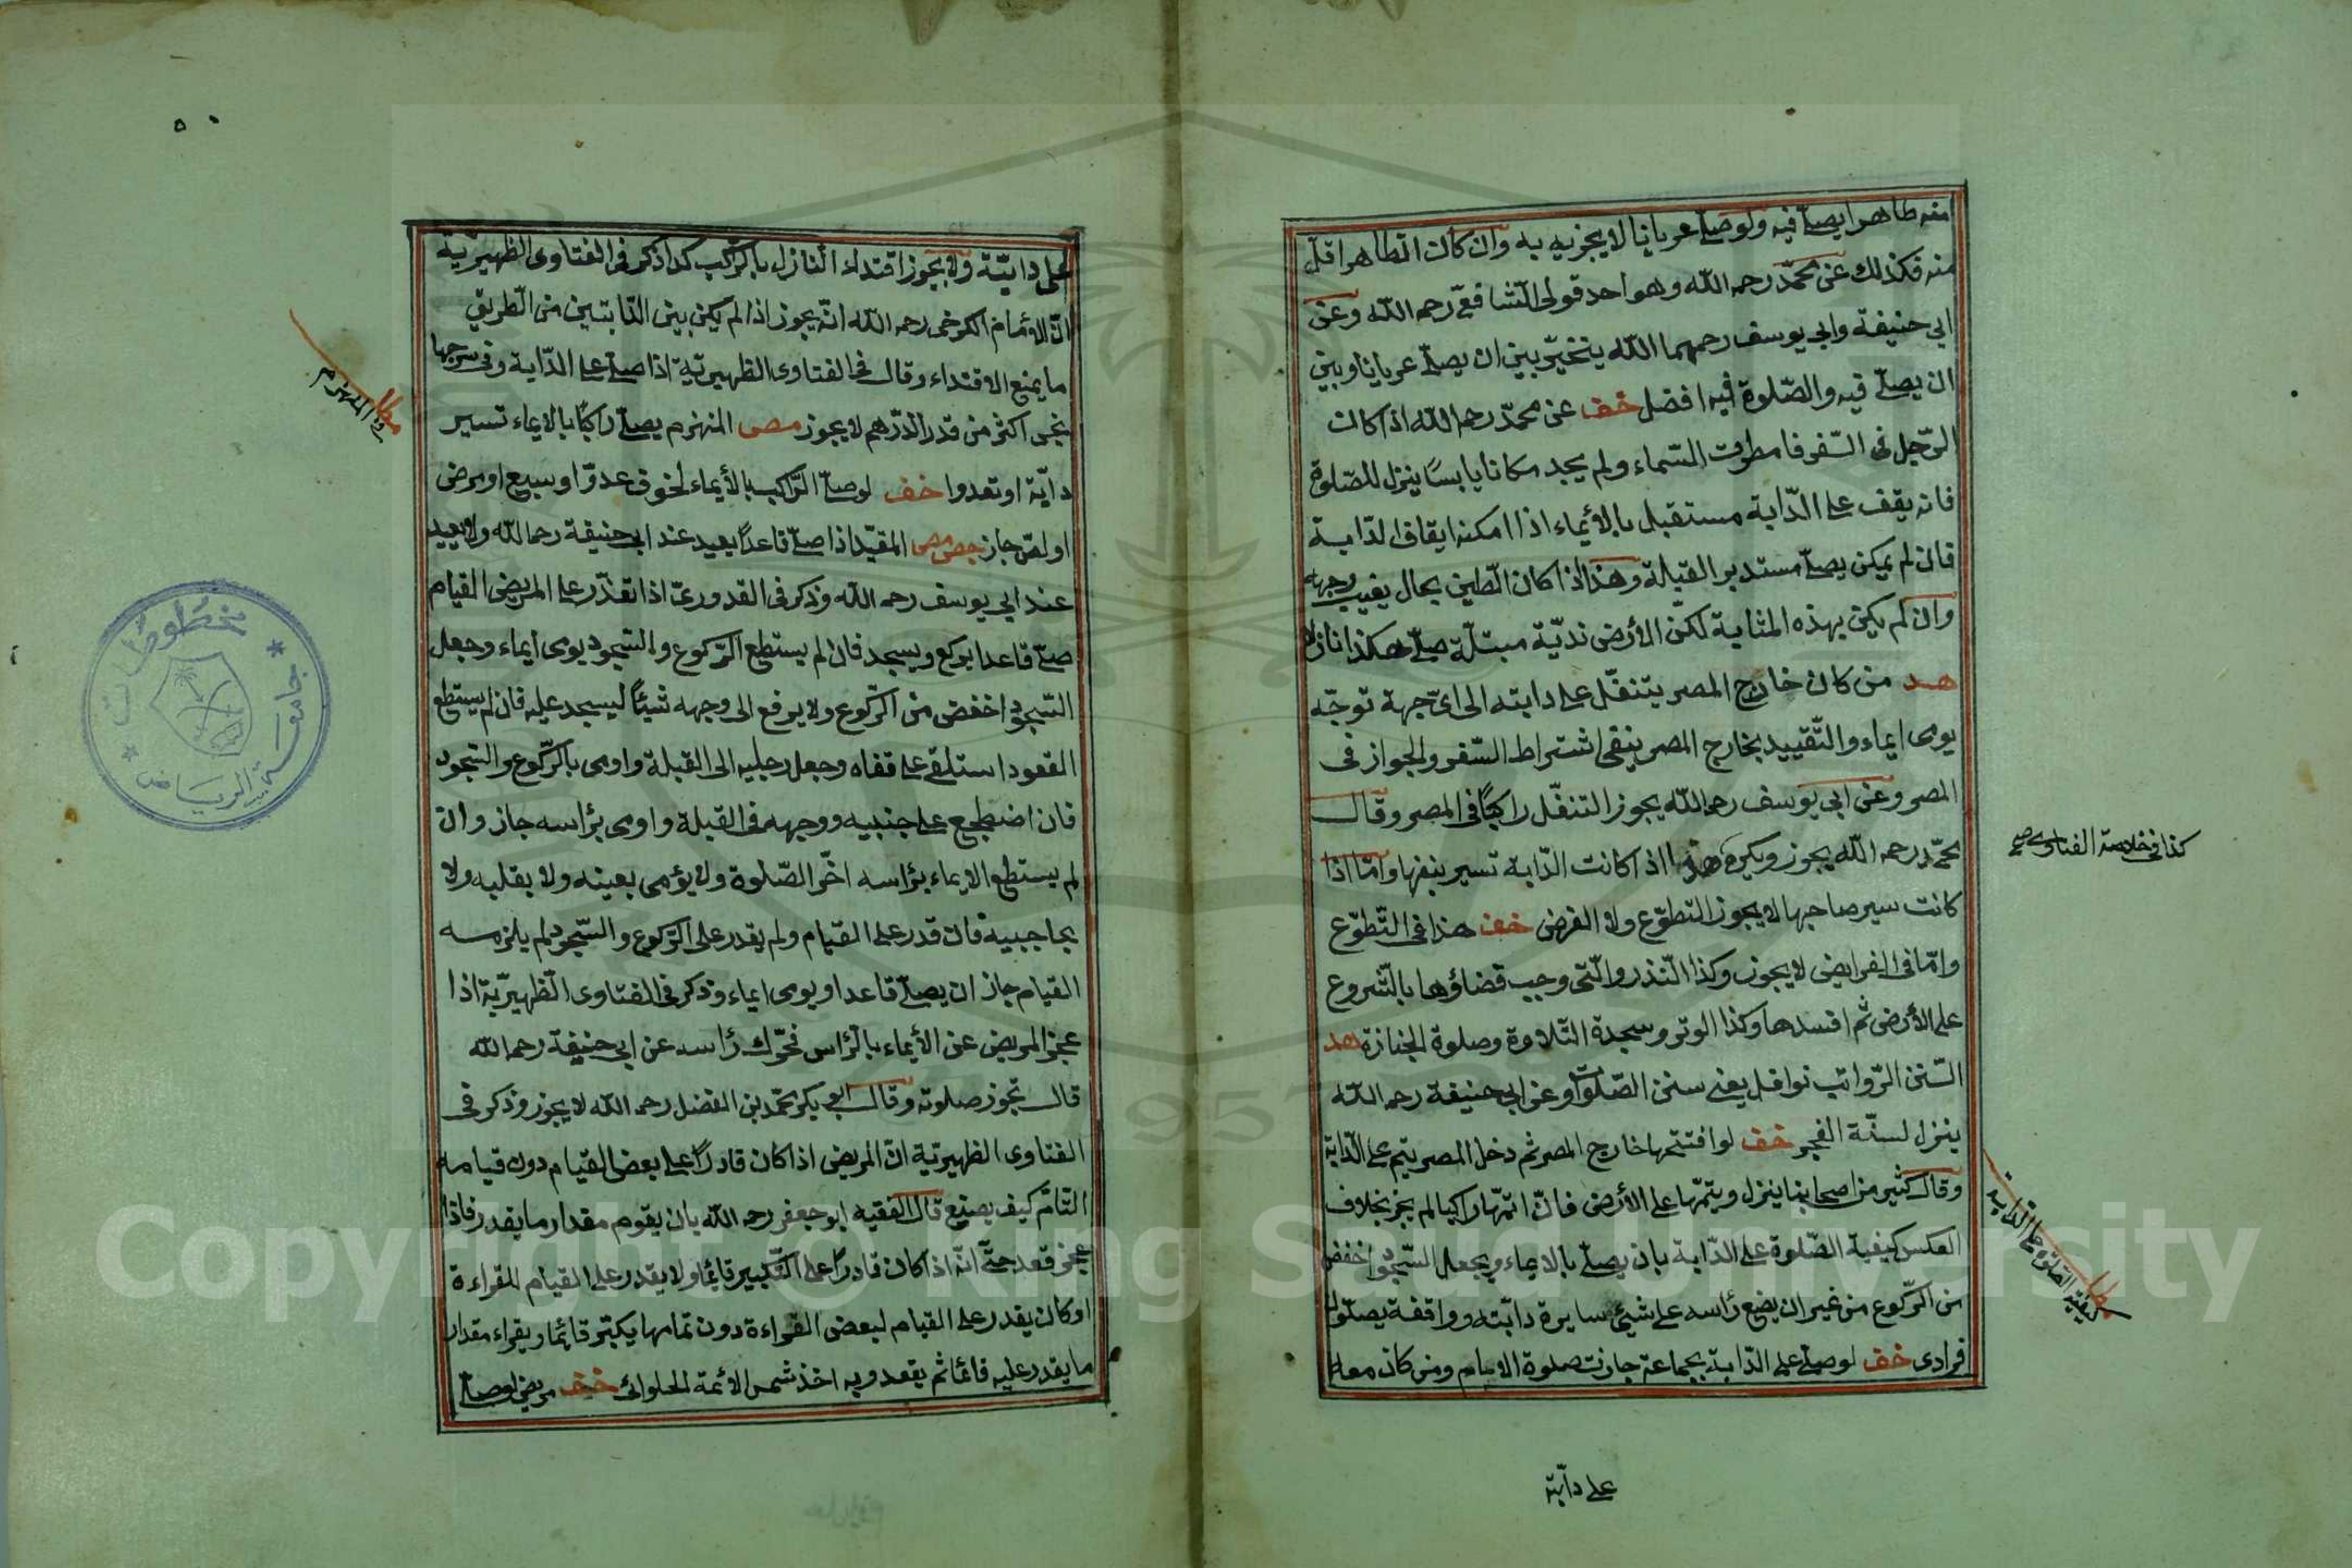 منه طاهرا يصلى فيه ولو صلى عريانا لا يجزيه به وان كان الطاهر اقل
منه فكذلك عن محمّد رحمه الله وهو احد قولى الشافعىّ رحمه الله وعن
ابى حنيفة وابى يوسف رحمهما الله يتخيّر بين ان يصلى عريانا وبين
ان يصلى فيه والصّلوة فيه افضل خف عن محمّد رحمه الله اذا كان
الرّجل فى السّفر فامطرت السّماء ولم يجد مكانا يابسًا ينزل للصّلوة
فانه يقف على الدّابة مستقبل بالأيماء اذا امكنه ايقاف الدّابة
فان لم يمكن يصلى مستدبر القبلة وهذا اذا كان الطّين بحال يغيب وجهه
وان لم يكن بهذه المثابة لكنّ الأرض نديّة مبتلّة صلى هكذا نازلا
هد من كان خارج المصر يتنفّل على دابته الى اىّ جهة توجّه
يومى ايماء والتّقييد بخارج المصر ينفى اشتراط السّفر والجواز فى
المصر وعن ابى يوسف رحمه الله يجوز التنفّل راكبًا فى المصر وقال
محمّد رحمه الله يجوز ويكره هذا اذا كانت الدّابة تسير بنفسها وامّا اذا
كانت سير صاحبها لا يجوز التطوّع ولا الفرض خف هذا فى التّطوّع
وامّا فى الفرايض لا يجوز وكذا النّذر والّتى وجب قضاؤها بالشّروع
على الأرض ثم افسدها وكذا الوتر وسجدة التّلاوة وصلوة الجنازة هد
السّنن الرّواتب نوافل يعنى سنن الصّلوات وعن ابى حنيفة رحمه الله
ينزل لسنّة الفجر خف لو افتتحها خارج المصر ثم دخل المصر يتم على الدّابة
وقال كثير من اصحابنا ينزل ويتمّها على الأرض فانّ اتمّها راكبا لم يجز بخلاف
العكس كيفية الصّلوة على الدّابة بان يصلى بالايماء ويجعل السّجود اخفض
من الرّكوع من غير ان يضع رأسه على شىء سايرة دابّته وواقفة يصلّون
فرادى خف لو صلى على الدّابة بجماعة جازت صلوة الامام ومن كان معه
كذا فى خلاصة الفتاوى صح
كيفية الصّلوة على الدّابة
على دابّة
على دابّته ولا يجوز اقتداء النازل بالرّاكب كذا ذكر فى الفتاوى الظهيريّة
انّ الأمام الكرخى رحمه الله انّه يجوز اذا لم يكن بين الدّابتين من الطّريق
ما يمنع الاقتداء وقال فى الفتاوى الظهيريّة اذا صلى على الدّابة وفى سرجها
نجس اكثر من قدر الدّرهم لا يجوز مص المنهزم يصلى راكبًا بالايماء تسير
دابّة او تعدوا خف لو صلى الرّاكب بالأيماء لخوف عدوّ او سبع او مرض
او لصّ جاز حص مص المقيّد اذا صلى قاعدًا يعيد عند ابى حنيفة رحمه الله ولا يعيد
عند ابى يوسف رحمه الله وذكر فى القدورىّ اذا تعذّر على المريض القيام
صلى قاعدا يركع ويسجد فان لم يستطع الرّكوع والسّجود يومى ايماء وجعل
السّجود اخفض من الرّكوع ولا يرفع الى وجهه شيئًا ليسجد عليه فان لم يستطع
القعود استلقى على قفاه وجعل رجليه الى القبلة واومى بالرّكوع والسّجود
فان اضطجع على جنبيه ووجهه فى القبلة واومى برأسه جاز وان
لم يستطع الايماء برأسه اخّر الصّلوة ولا يؤمى بعينه ولا بقلبه ولا
بحاجبيه فان قدر على القيام ولم يقدر على الرّكوع والسّجود لم يلزمه
القيام جاز ان يصلى قاعدا ويومى ايماء وذكر فى الفتاوى الظهيريّة اذا
عجز المريض عن الأيماء بالرّأس فحرّك رأسه عن ابى حنيفة رحمه الله
قال تجوز صلوته وقال ابو بكر محمّد بن الفضل رحمه الله لا يجوز وذكر فى
الفتاوى الظهيرتية انّ المريض اذا كان قادرًا على بعض القيام دون قيامه
التّامّ كيف يصنع قال الفقيه ابو جعفر رحمه الله بان يقوم مقدار ما يقدر فاذا
عجز قعد حتّى انّه اذا كان قادرًا على التّكبير قائما ولا يقدر على القيام للقراءة
او كان يقدر على القيام لبعض القراءة دون تمامها يكبّر قائما ويقراء مقدار
ما يقدر عليه قائما ثم يقعد وبه اخذ شمس الأئمة الحلوائى خف مريض لو صلى
المنهزم
مخطوطات
جامعة الرياض
Copyright © King Saud University
1957